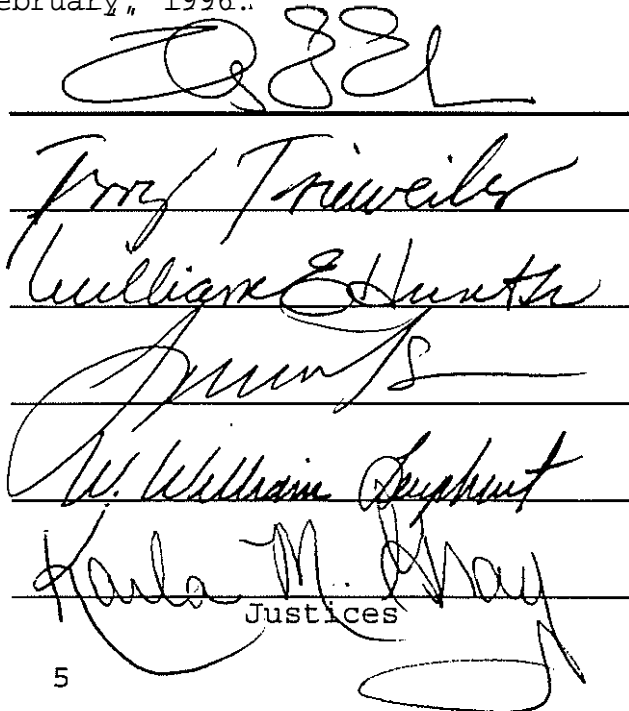 ebruary, 1996.
Terry Trieweiler
William E Hunt Sr
W. William Leaphart
Karla M. Gray
Justices
5